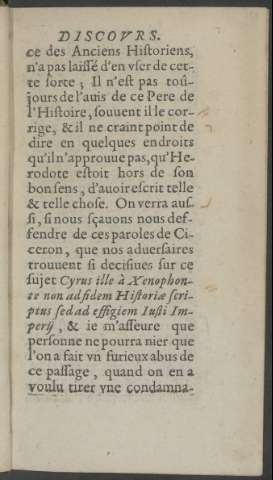 DISCOVRS.
ce des Anciens Historiens,
n'a pas laissé d'en vser de cet-
te sorte ; Il n'est pas toû-
jours de l'auis de ce Pere de
l'Histoire, souuent il le cor-
rige, & il ne craint point de
dire en quelques endroits
qu'il n'approuue pas, qu'He-
rodote estoit hors de son
bon sens, d'auoir escrit telle
& telle chose. On verra aus-
si, si nous sçauons nous def-
fendre de ces paroles de Ci-
ceron, que nos aduersaires
trouuent si decisiues sur ce
sujet Cyrus ille à Xenophon-
te non ad fidem Historiæ scri-
ptus sed ad effigiem Iusti Im-
perij, & ie m'asseure que
personne ne pourra nier que
l'on a fait vn furieux abus de
ce passage, quand on en a
voulu tirer vne condamna-